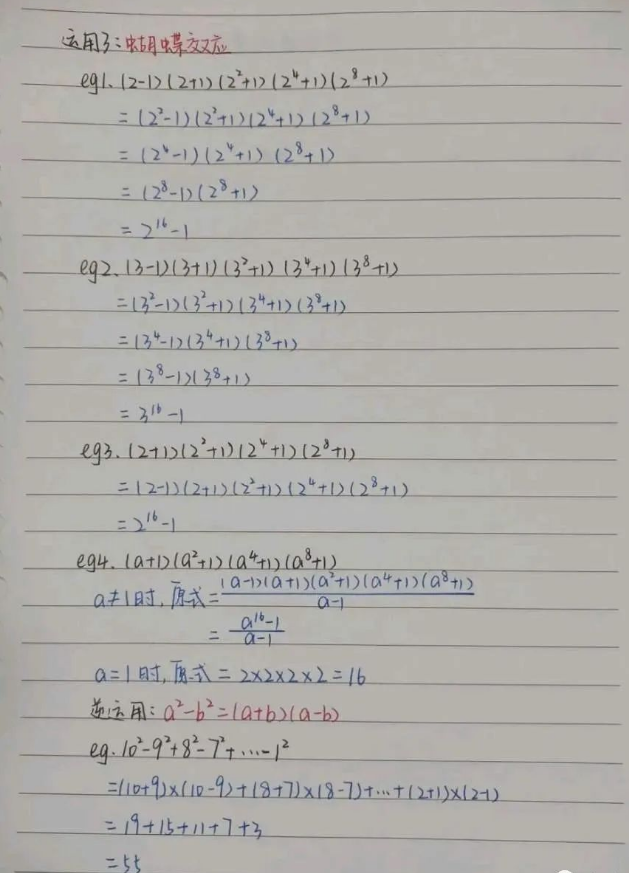 运用3:蝴蝶效应
eg1. (2-1)(2+1)(2²+1)(2⁴+1)(2⁸+1)
= (2²-1)(2²+1)(2⁴+1)(2⁸+1)
= (2⁴-1)(2⁴+1)(2⁸+1)
= (2⁸-1)(2⁸+1)
= 2¹⁶-1
eg2. (3-1)(3+1)(3²+1)(3⁴+1)(3⁸+1)
= (3²-1)(3²+1)(3⁴+1)(3⁸+1)
= (3⁴-1)(3⁴+1)(3⁸+1)
= (3⁸-1)(3⁸+1)
= 3¹⁶-1
eg3. (2+1)(2²+1)(2⁴+1)(2⁸+1)
= (2-1)(2+1)(2²+1)(2⁴+1)(2⁸+1)
= 2¹⁶-1
eg4. (a+1)(a²+1)(a⁴+1)(a⁸+1)
a≠1时, 原式 = (a-1)(a+1)(a²+1)(a⁴+1)(a⁸+1) / a-1
= a¹⁶-1 / a-1
a=1时, 原式 = 2×2×2×2=16
逆运用: a²-b²=(a+b)(a-b)
eg. 10²-9²+8²-7²+…-1²
=(10+9)×(10-9)+(8+7)×(8-7)+…+(2+1)×(2-1)
= 19+15+11+7+3
= 55